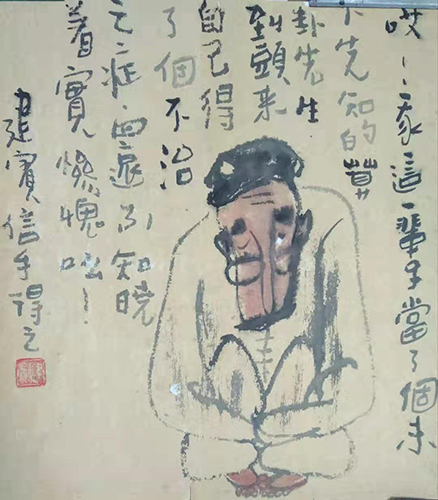 哎！我這一輩子當了個未
卜先知的算
卦先生
到頭来
自己得
了個不治
之症 知曉
着實慚愧
建賓信手得之